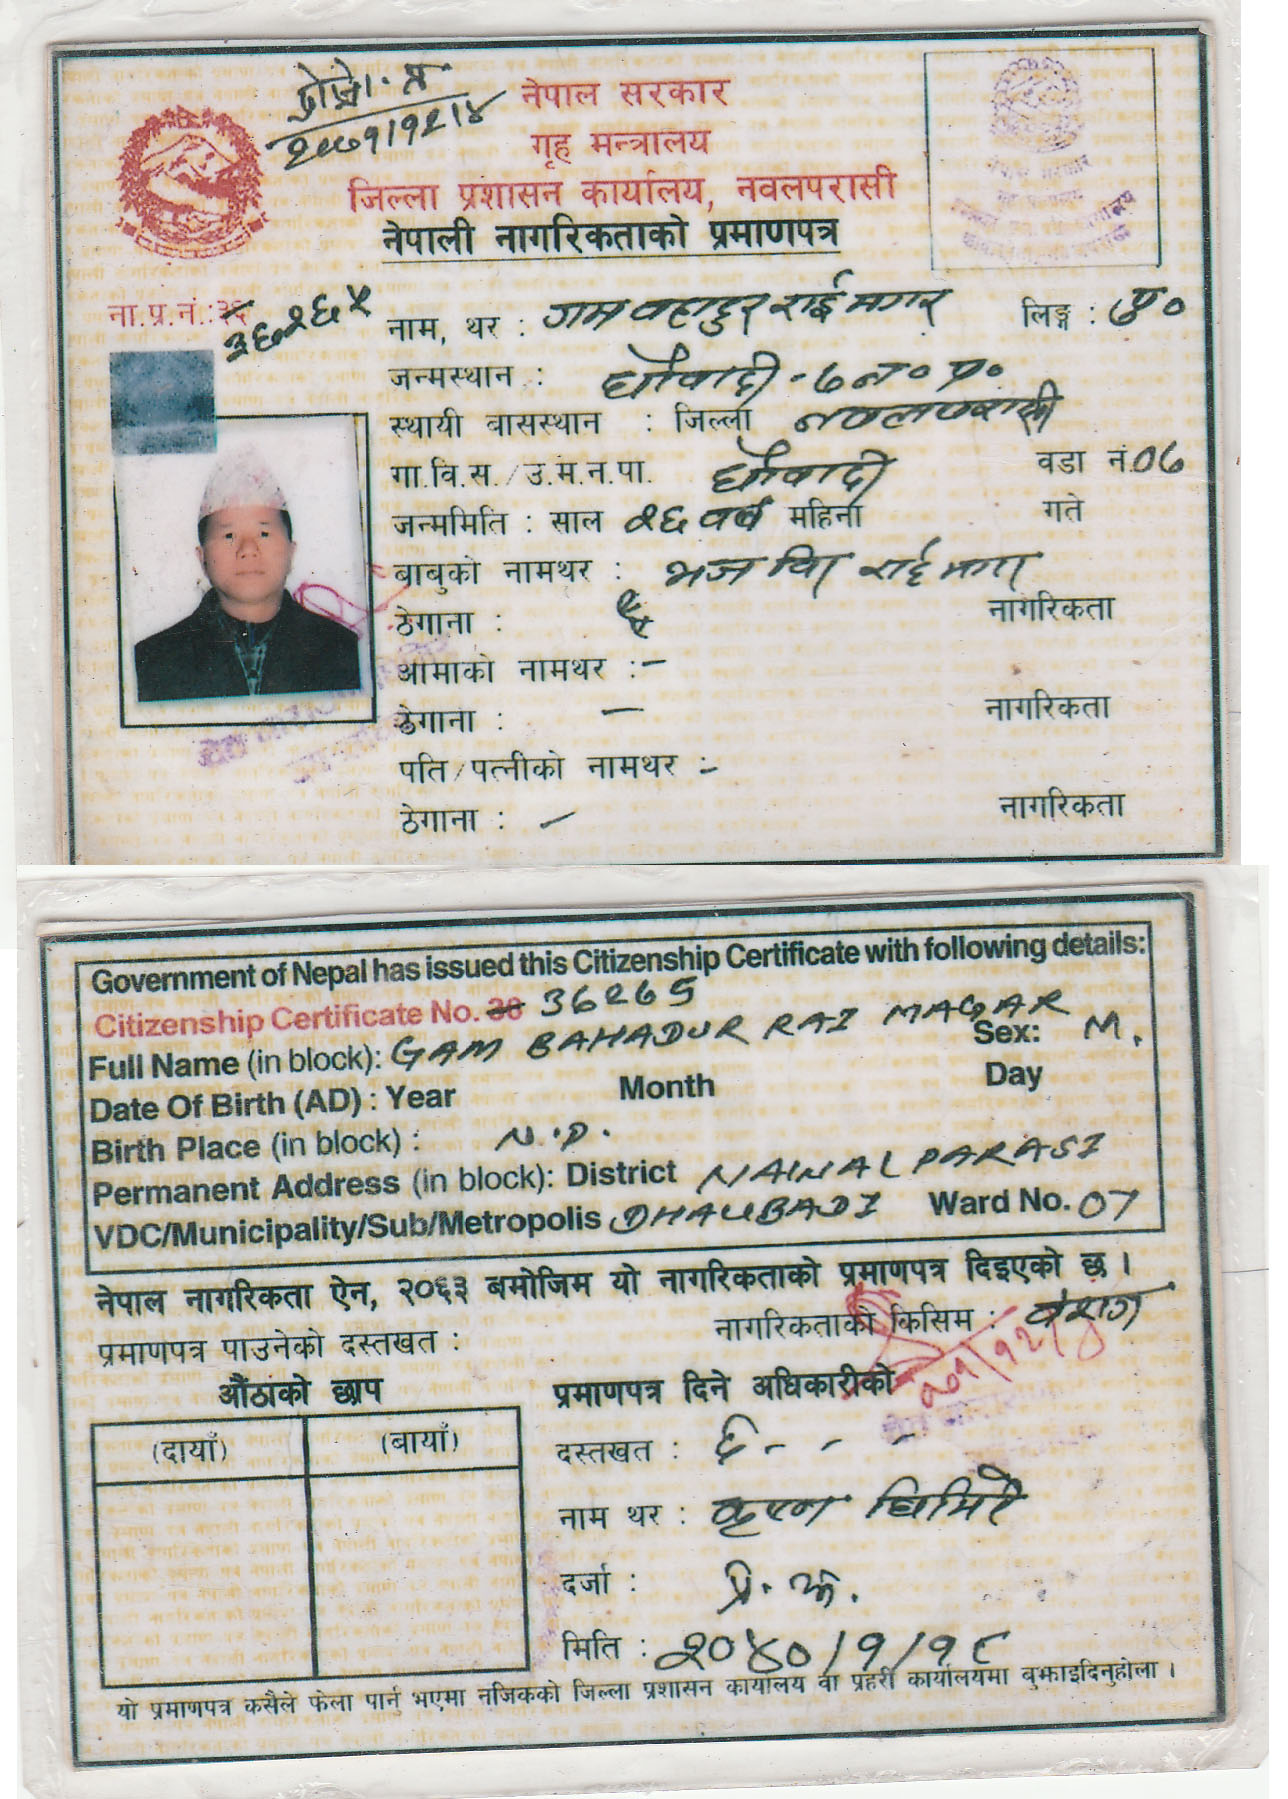 दोश्रो. प्र
२०७१।१२।४
नेपाल सरकार
गृह मन्त्रालय
जिल्ला प्रशासन कार्यालय, नवलपरासी
नेपाली नागरिकताको प्रमाणपत्र
ना.प्र.नं.: ३६२६५
नाम, थर : गम वहादुर राई मगर लिङ्ग : पु०
जन्मस्थान : धौवादी - ७ न० प०
स्थायी बासस्थान : जिल्ला नवलपरासी
गा.वि.स./उ.म.न.पा. धौवादी वडा नं. ०७
जन्ममिति : साल २६ वर्ष महिना गते
बाबुको नामथर : राई मगर
ठेगाना : नागरिकता
आमाको नामथर :-
ठेगाना : - नागरिकता
पति/पत्नीको नामथर :-
ठेगाना : - नागरिकता
Government of Nepal has issued this Citizenship Certificate with following details:
Citizenship Certificate No. 36265
Full Name (in block): GAM BAHADUR RAI MAGAR Sex: M.
Date Of Birth (AD) : Year Month Day
Birth Place (in block) : N.P.
Permanent Address (in block): District NAWALPARASI
VDC/Municipality/Sub/Metropolis DHAUBADI Ward No. 07
नेपाल नागरिकता ऐन, २०६३ बमोजिम यो नागरिकताको प्रमाणपत्र दिइएको छ ।
नागरिकताको किसिम : वंशज
प्रमाणपत्र पाउनेको दस्तखत :
औंठाको छाप
प्रमाणपत्र दिने अधिकारीको
(दायाँ) (बायाँ)
दस्तखत :
नाम थर : कृष्ण घिमिरे
दर्जा : प्र.
मिति : २०४०/१/१८
यो प्रमाणपत्र कसैले फेला पार्नु भएमा नजिकको जिल्ला प्रशासन कार्यालय वा प्रहरी कार्यालयमा बुझाइदिनुहोला ।